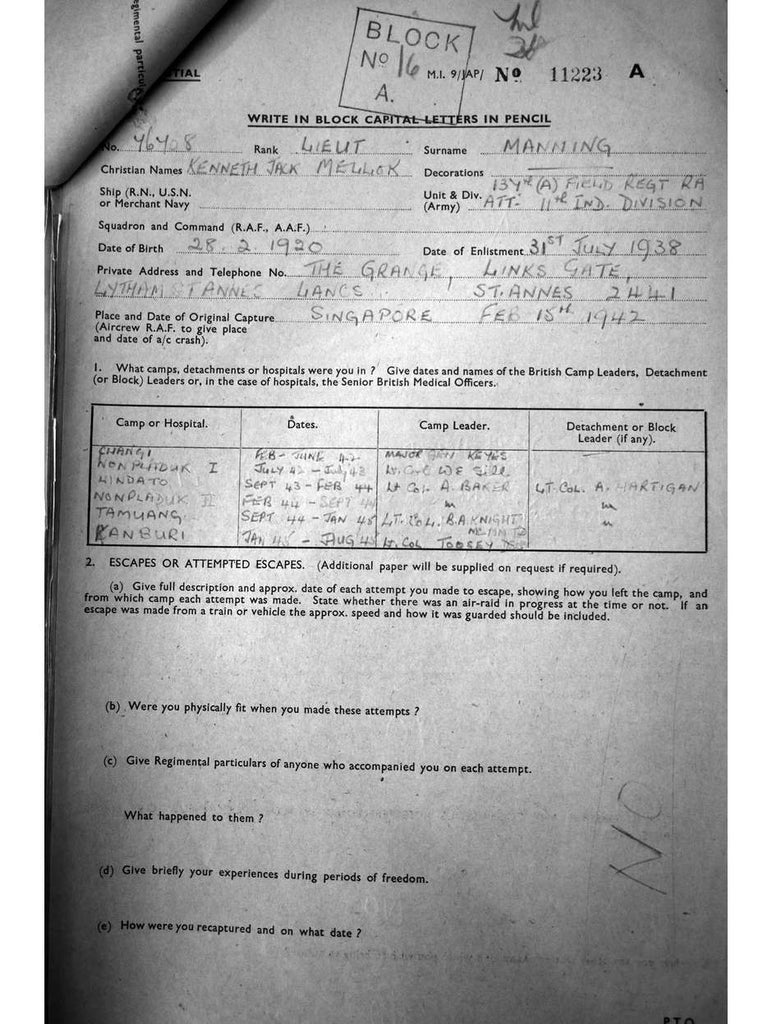 egimental particul
TIAL
BLOCK
No 16
A.
M.I. 9/JAP/ No 11223 A
WRITE IN BLOCK CAPITAL LETTERS IN PENCIL
No. 76708 Rank LIEUT Surname MANNING
Christian Names KENNETH JACK MELLOR Decorations
Ship (R.N., U.S.N.
or Merchant Navy
Unit & Div. 137th (A) FIELD REGT RA
(Army) ATT. 11th IND. DIVISION
Squadron and Command (R.A.F., A.A.F.)
Date of Birth 28.2.1920 Date of Enlistment 31ST JULY 1938
Private Address and Telephone No. THE GRANGE, LINKS GATE,
LYTHAM ST ANNES LANCS ST. ANNES 2441
Place and Date of Original Capture SINGAPORE FEB 15th 1942
(Aircrew R.A.F. to give place
and date of a/c crash).
1. What camps, detachments or hospitals were you in ? Give dates and names of the British Camp Leaders, Detachment
(or Block) Leaders or, in the case of hospitals, the Senior British Medical Officers.
Camp or Hospital. Dates. Camp Leader. Detachment or Block
Leader (if any).
CHANGI FEB - JUNE 42 MAJOR KEYES
NONPLADUK I JULY 42 - July 43 Lt. Col WE Gill
HINDATO SEPT 43 - FEB 44 Lt Col. A. BAKER LT. COL. A. HARTIGAN
NONPLADUK II FEB 44 - SEPT 44 "
TAMUANG SEPT 44 - JAN 45 LT. COL. B.A KNIGHT "
KANBURI JAN 45 - AUG 45 Lt. Col TOOSEY DSO
2. ESCAPES OR ATTEMPTED ESCAPES. (Additional paper will be supplied on request if required).
(a) Give full description and approx. date of each attempt you made to escape, showing how you left the camp, and
from which camp each attempt was made. State whether there was an air-raid in progress at the time or not. If an
escape was made from a train or vehicle the approx. speed and how it was guarded should be included.
(b) Were you physically fit when you made these attempts ?
(c) Give Regimental particulars of anyone who accompanied you on each attempt.
What happened to them ?
NO
(d) Give briefly your experiences during periods of freedom.
(e) How were you recaptured and on what date ?
P.T.O.